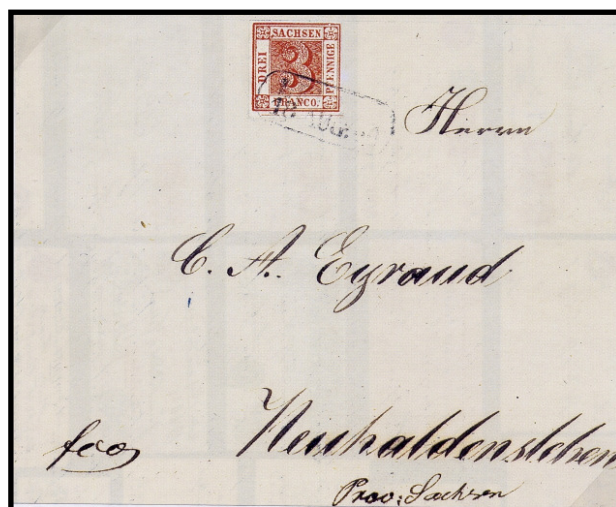 SACHSEN
DREI
3
PFENNIGE
FRANCO.
18 AUG.
Herrn
C. A. Eyraud
fco
Neuhaldensleben
Prov: Sachsen